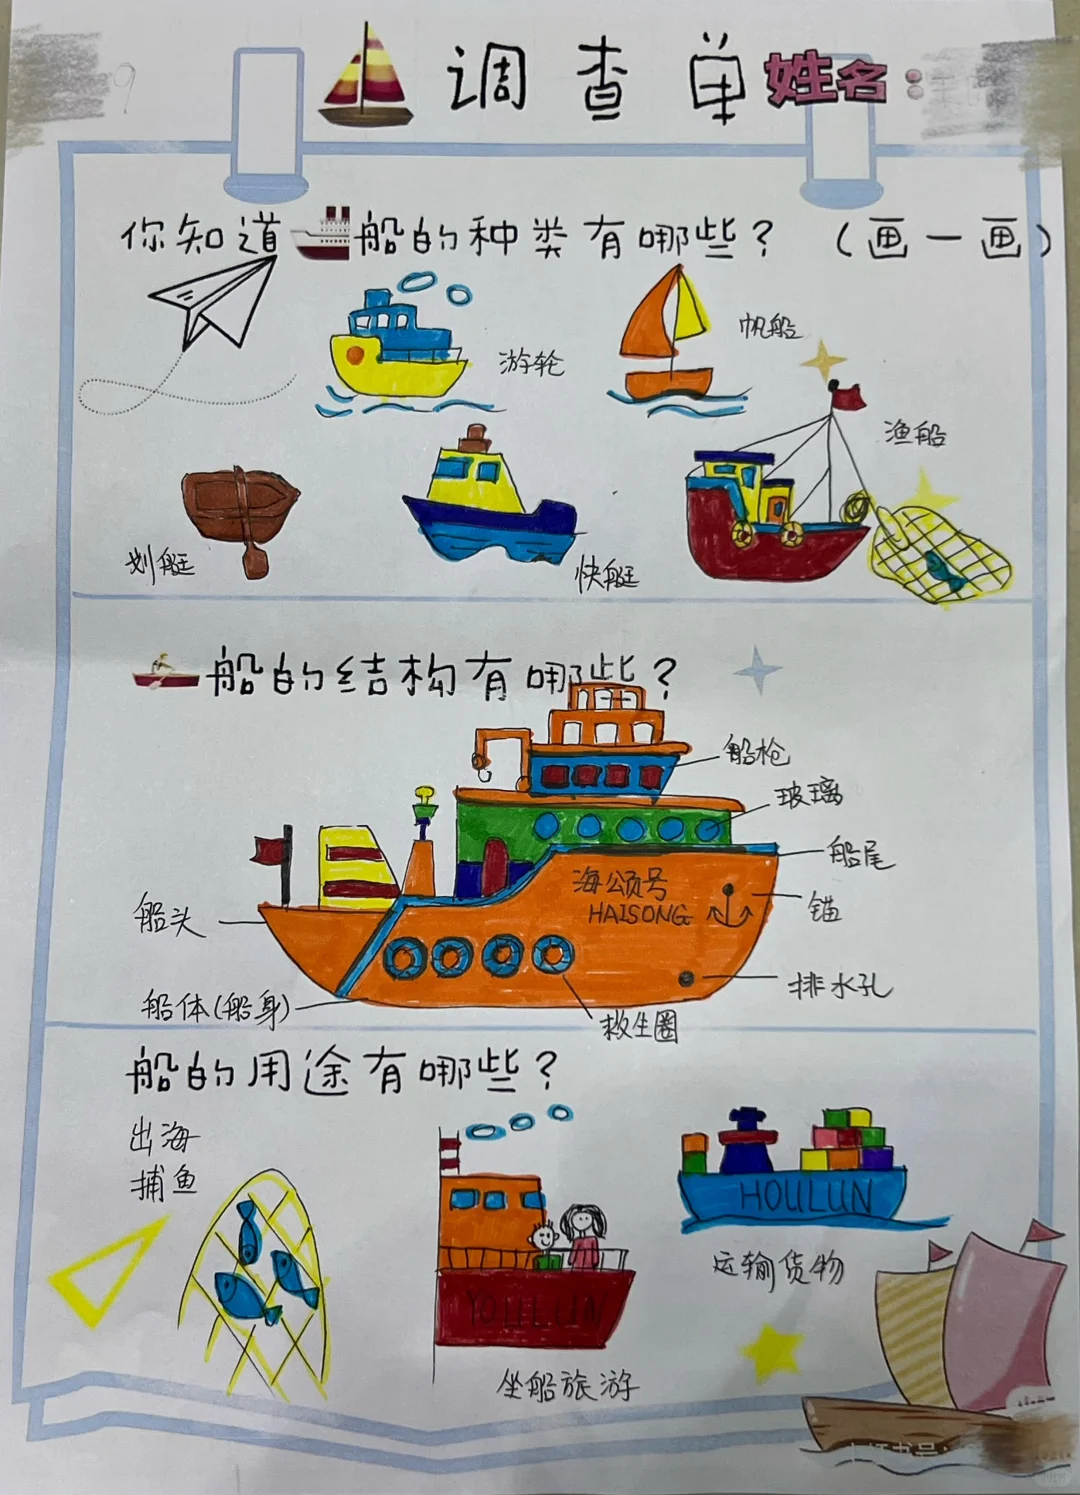 调查单 姓名：
你知道船的种类有哪些？（画一画）
游轮
帆船
渔船
划艇
快艇
船的结构有哪些？
船枪
玻璃
船尾
海颂号
HAISONG
锚
船头
排水孔
船体(船身)
救生圈
船的用途有哪些？
出海
捕鱼
HOULUN
运输货物
YOULUN
坐船旅游